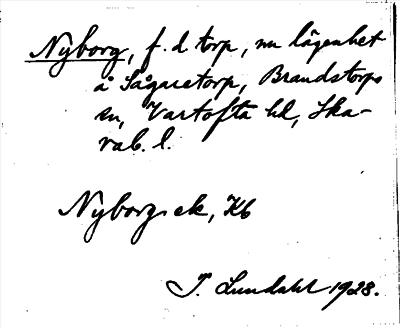 Nyborg, f. d torp, nu lägenhet
å Sågaretorp, Brandstorps
sn, Vartofta hd, Ska-
rab. l.
Nyborgs ek, Kb
J. Lundahl 1928.